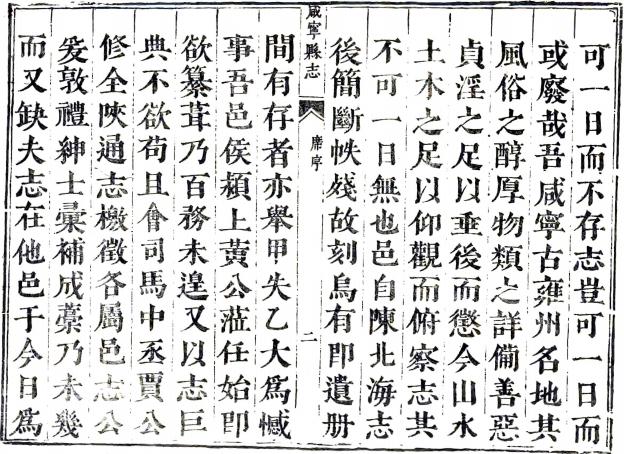 可一日而不存志豈可一日而
或廢哉吾咸寧古雍州名地其
風俗之醇厚物類之詳備善惡
貞淫之足以垂後而懲今山水
土木之足以仰觀而俯察志其
不可一日無也邑自陳北海志
後簡斷帙殘故刻烏有即遺册
咸寧縣志
序
二
間有存者亦舉甲失乙大為憾
事吾邑侯潁上黃公蒞任始即
欲纂葺乃百務未遑又以志巨
典不欲苟且會司馬中丞賈公
修全陝通志檄徵各屬邑志公
爰敦禮紳士彙補成藁乃未幾
而又缺夫志在他邑于今日為